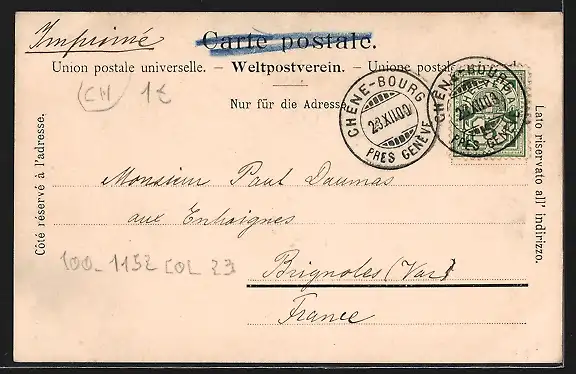 Imprimé
Carte postale.
Union postale universelle. – Weltpostverein. – Unione postale
(CH) 1€
Nur für die Adresse
CHÊNE-BOURG
23.XII.00
PRÈS GENÈVE
CHÊNE-BOURG
23.XII.00
PRÈS GENÈVE
HELVETIA
5
Côté réservé à l'adresse.
Lato riservato all' indirizzo.
Monsieur Paul Daumas
aux
Brignoles (Var)
France
100-1152 COL 23